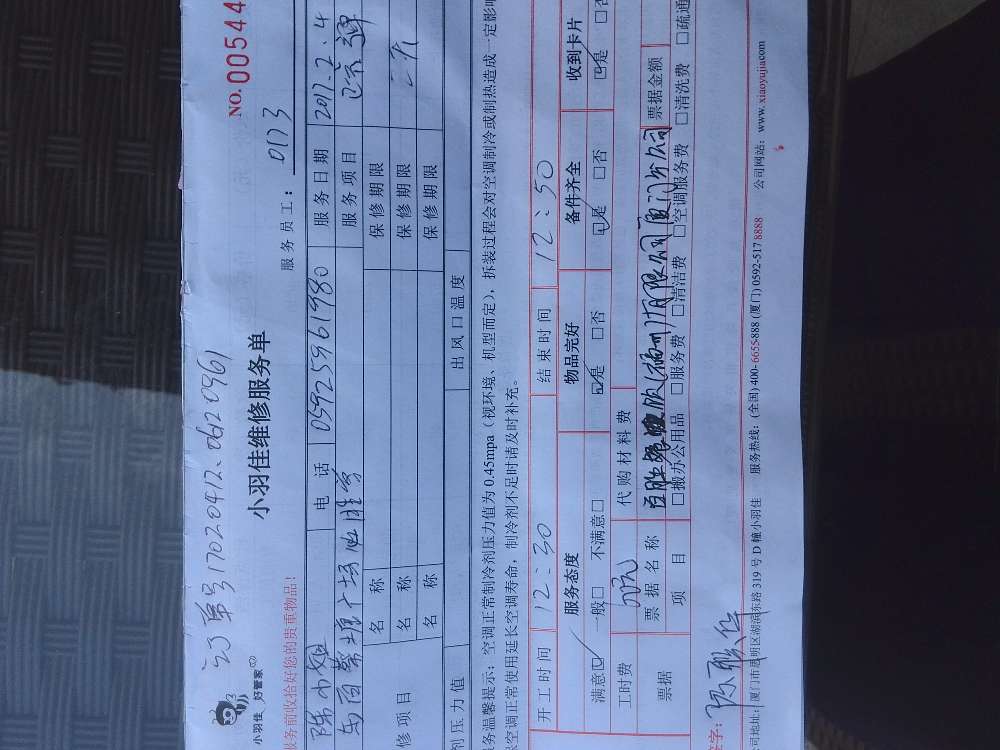 订单号1702041210620961
小羽佳 好管家
小羽佳维修服务单
NO.00544
服务前收拾好您的贵重物品!
服务员工: 0173
陈小姐 电话 05925961980 服务日期 2017.2.4
服务项目
修项目 名称 保修期限
名称 保修期限
名称 保修期限
剂压力值 出风口温度
务温馨提示: 空调正常制冷剂压力值为0.45mpa(视环境、机型而定), 拆装过程会对空调制冷或制热造成一定影响
空调正常使用延长空调寿命, 制冷剂不足时请及时补充。
开工时间 12:30 结束时间 12:50
服务态度 物品完好 备件齐全 收到卡片
满意☑ 一般□ 不满意□ ☑是 □否 ☑是 □否 ☑是 □否
工时费 代购材料费
票据 票据名称 百胜餐饮(福州)有限公司厦门分公司 票据金额
项目 □搬办公用品 □服务费 □清洁费 □空调服务费 □清洗费 □疏通
签字:
公司地址: 厦门市思明区湖滨东路319号D幢小羽佳 服务热线: (全国) 400-6655-888 (厦门) 0592-517 8888 公司网站: www.xiaoyujia.com